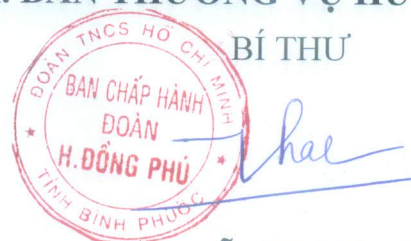 BAN THƯỜNG VỤ
BÍ THƯ
ĐOÀN TNCS HỒ CHÍ MINH
BAN CHẤP HÀNH
ĐOÀN
H.ĐỒNG PHÚ
TỈNH BÌNH PHƯỚC